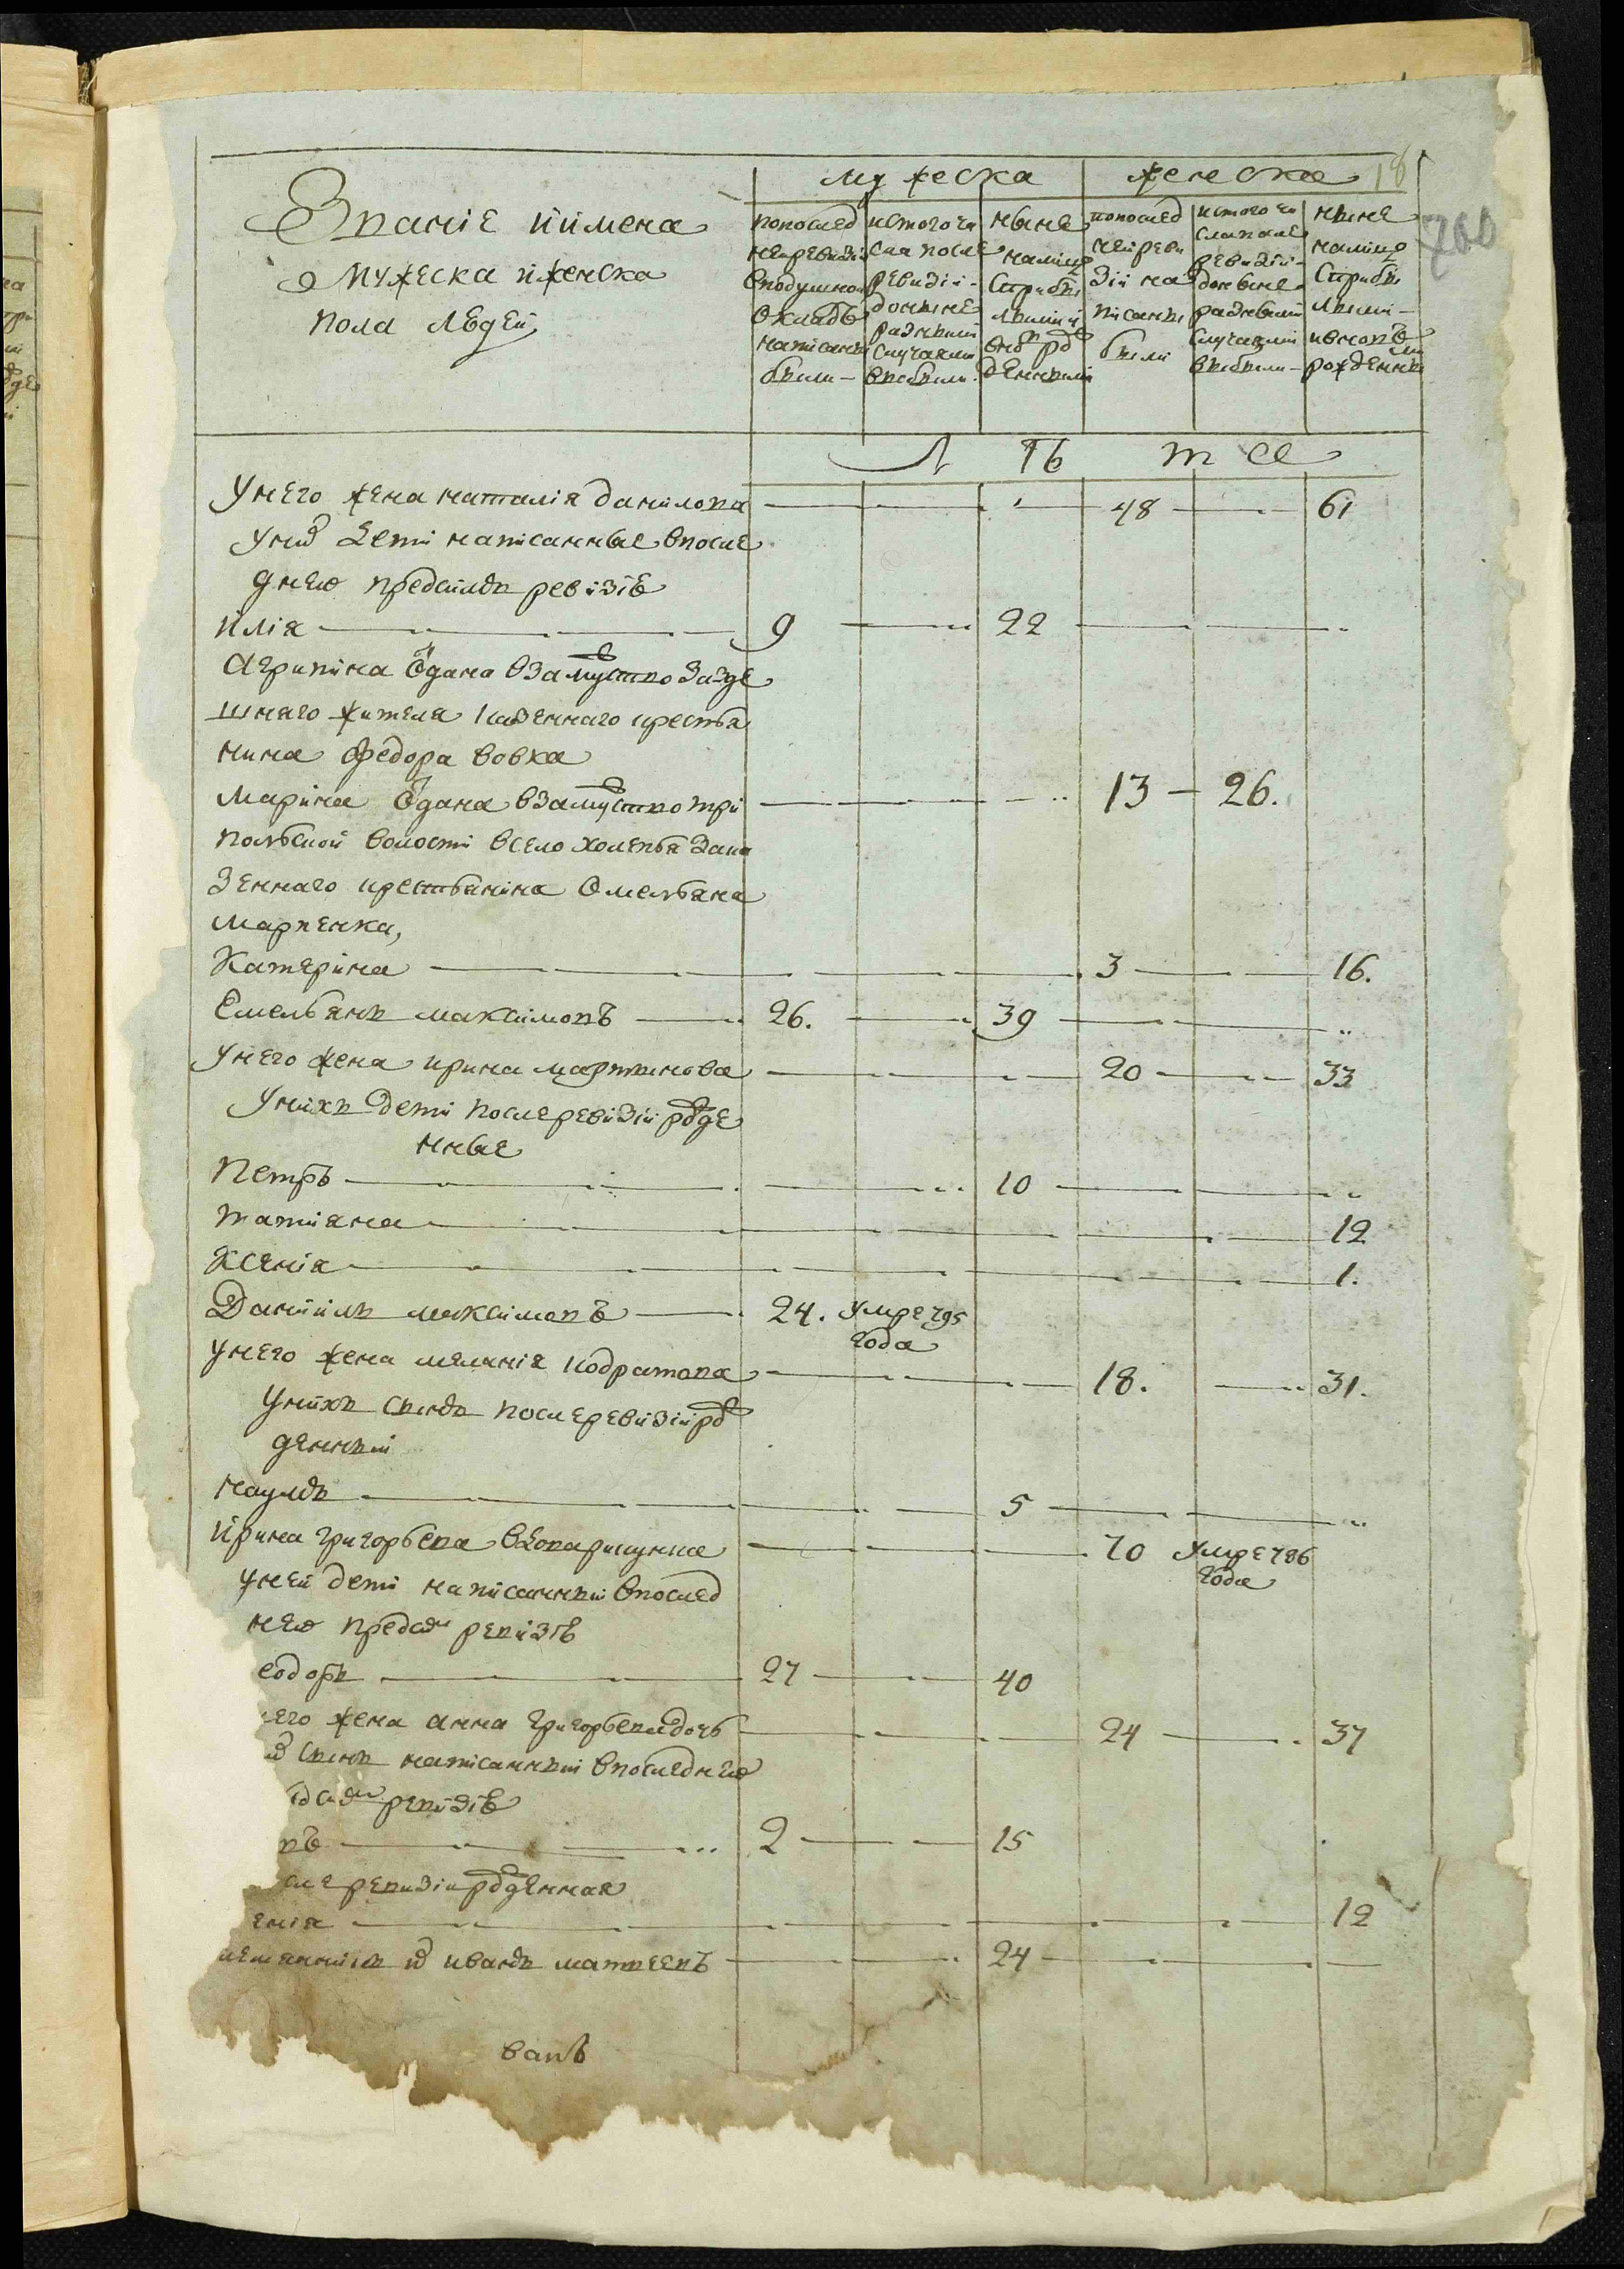 18
700
мужеска женска
Званіе и имена
мужеска и женска
пола людей
по послед
ней ревизіи
в подушной
окладъ
написаны
были
ис того чи
сла после
ревизіи
до ныне
разными
случаями
выбыли
ныне
на лицо
с прибы
лыми и
вновь рож
денными
по послед
ней реви
зіи на
писаны
были
ис того чи
сла после
ревизіи
до ныне
разными
случаями
выбыли
ныне
на лицо
с прибы
лыми
и вновь
рожденны
ми
Л Ѣ т а
У него жена наталія данилова 48 61
у них дети написанные в после
днею предсимъ ревизіе
илія 9 22
Агрипина отдана в замужство за зде
шнего жителя казенного крестья
нина федора вовка
Марина отдана в замужство три 13 26.
польской волости в село холепья за ка
зенного крестьянина Омельяна
марченка,
Катерина 3 16.
Емельянъ максимовъ 26. 39
у него жена ирина мартинова 20 33
у нихъ дети после ревизіи рожде
нные
Петръ 10
татіяна 12
Ксенія 1.
Даніилъ максимовъ 24. умре 795
года
у него жена меланія кодратова 18. 31.
у нихъ сынъ после ревизіи рож
денный
наумъ 5
ирина григорьева вдова 70 умре 786
года
у ней дети написанныи в послед
нею пред сим ревизіе
еодоръ 27 40
его жена анна григорьева дочь 24 37
сынъ написанный в последнею
ревизіе
въ 2 15
сле ревизіи рожденная
енія 12
племянникъ их иванъ матвеевъ 24